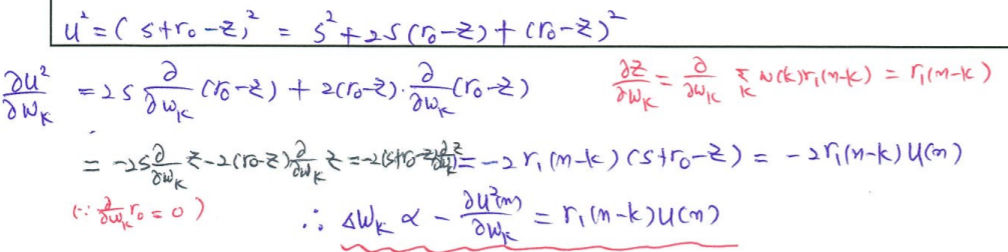 u² = (s+r₀-z)² = s² + 2s(r₀-z) + (r₀-z)²
∂u²/∂w_k = 2s ∂/∂w_k (r₀-z) + 2(r₀-z)·∂/∂w_k (r₀-z)
∂z/∂w_k = ∂/∂w_k Σ_k w(k)r₁(n-k) = r₁(n-k)
= -2s ∂/∂w_k z - 2(r₀-z) ∂/∂w_k z = -2(s+r₀-z) ∂z/∂w_k = -2r₁(n-k)(s+r₀-z) = -2r₁(n-k)u(n)
(∵ ∂/∂w_k r₀ = 0)
∴ Δw_k ∝ - ∂u²(n)/∂w_k = r₁(n-k)u(n)